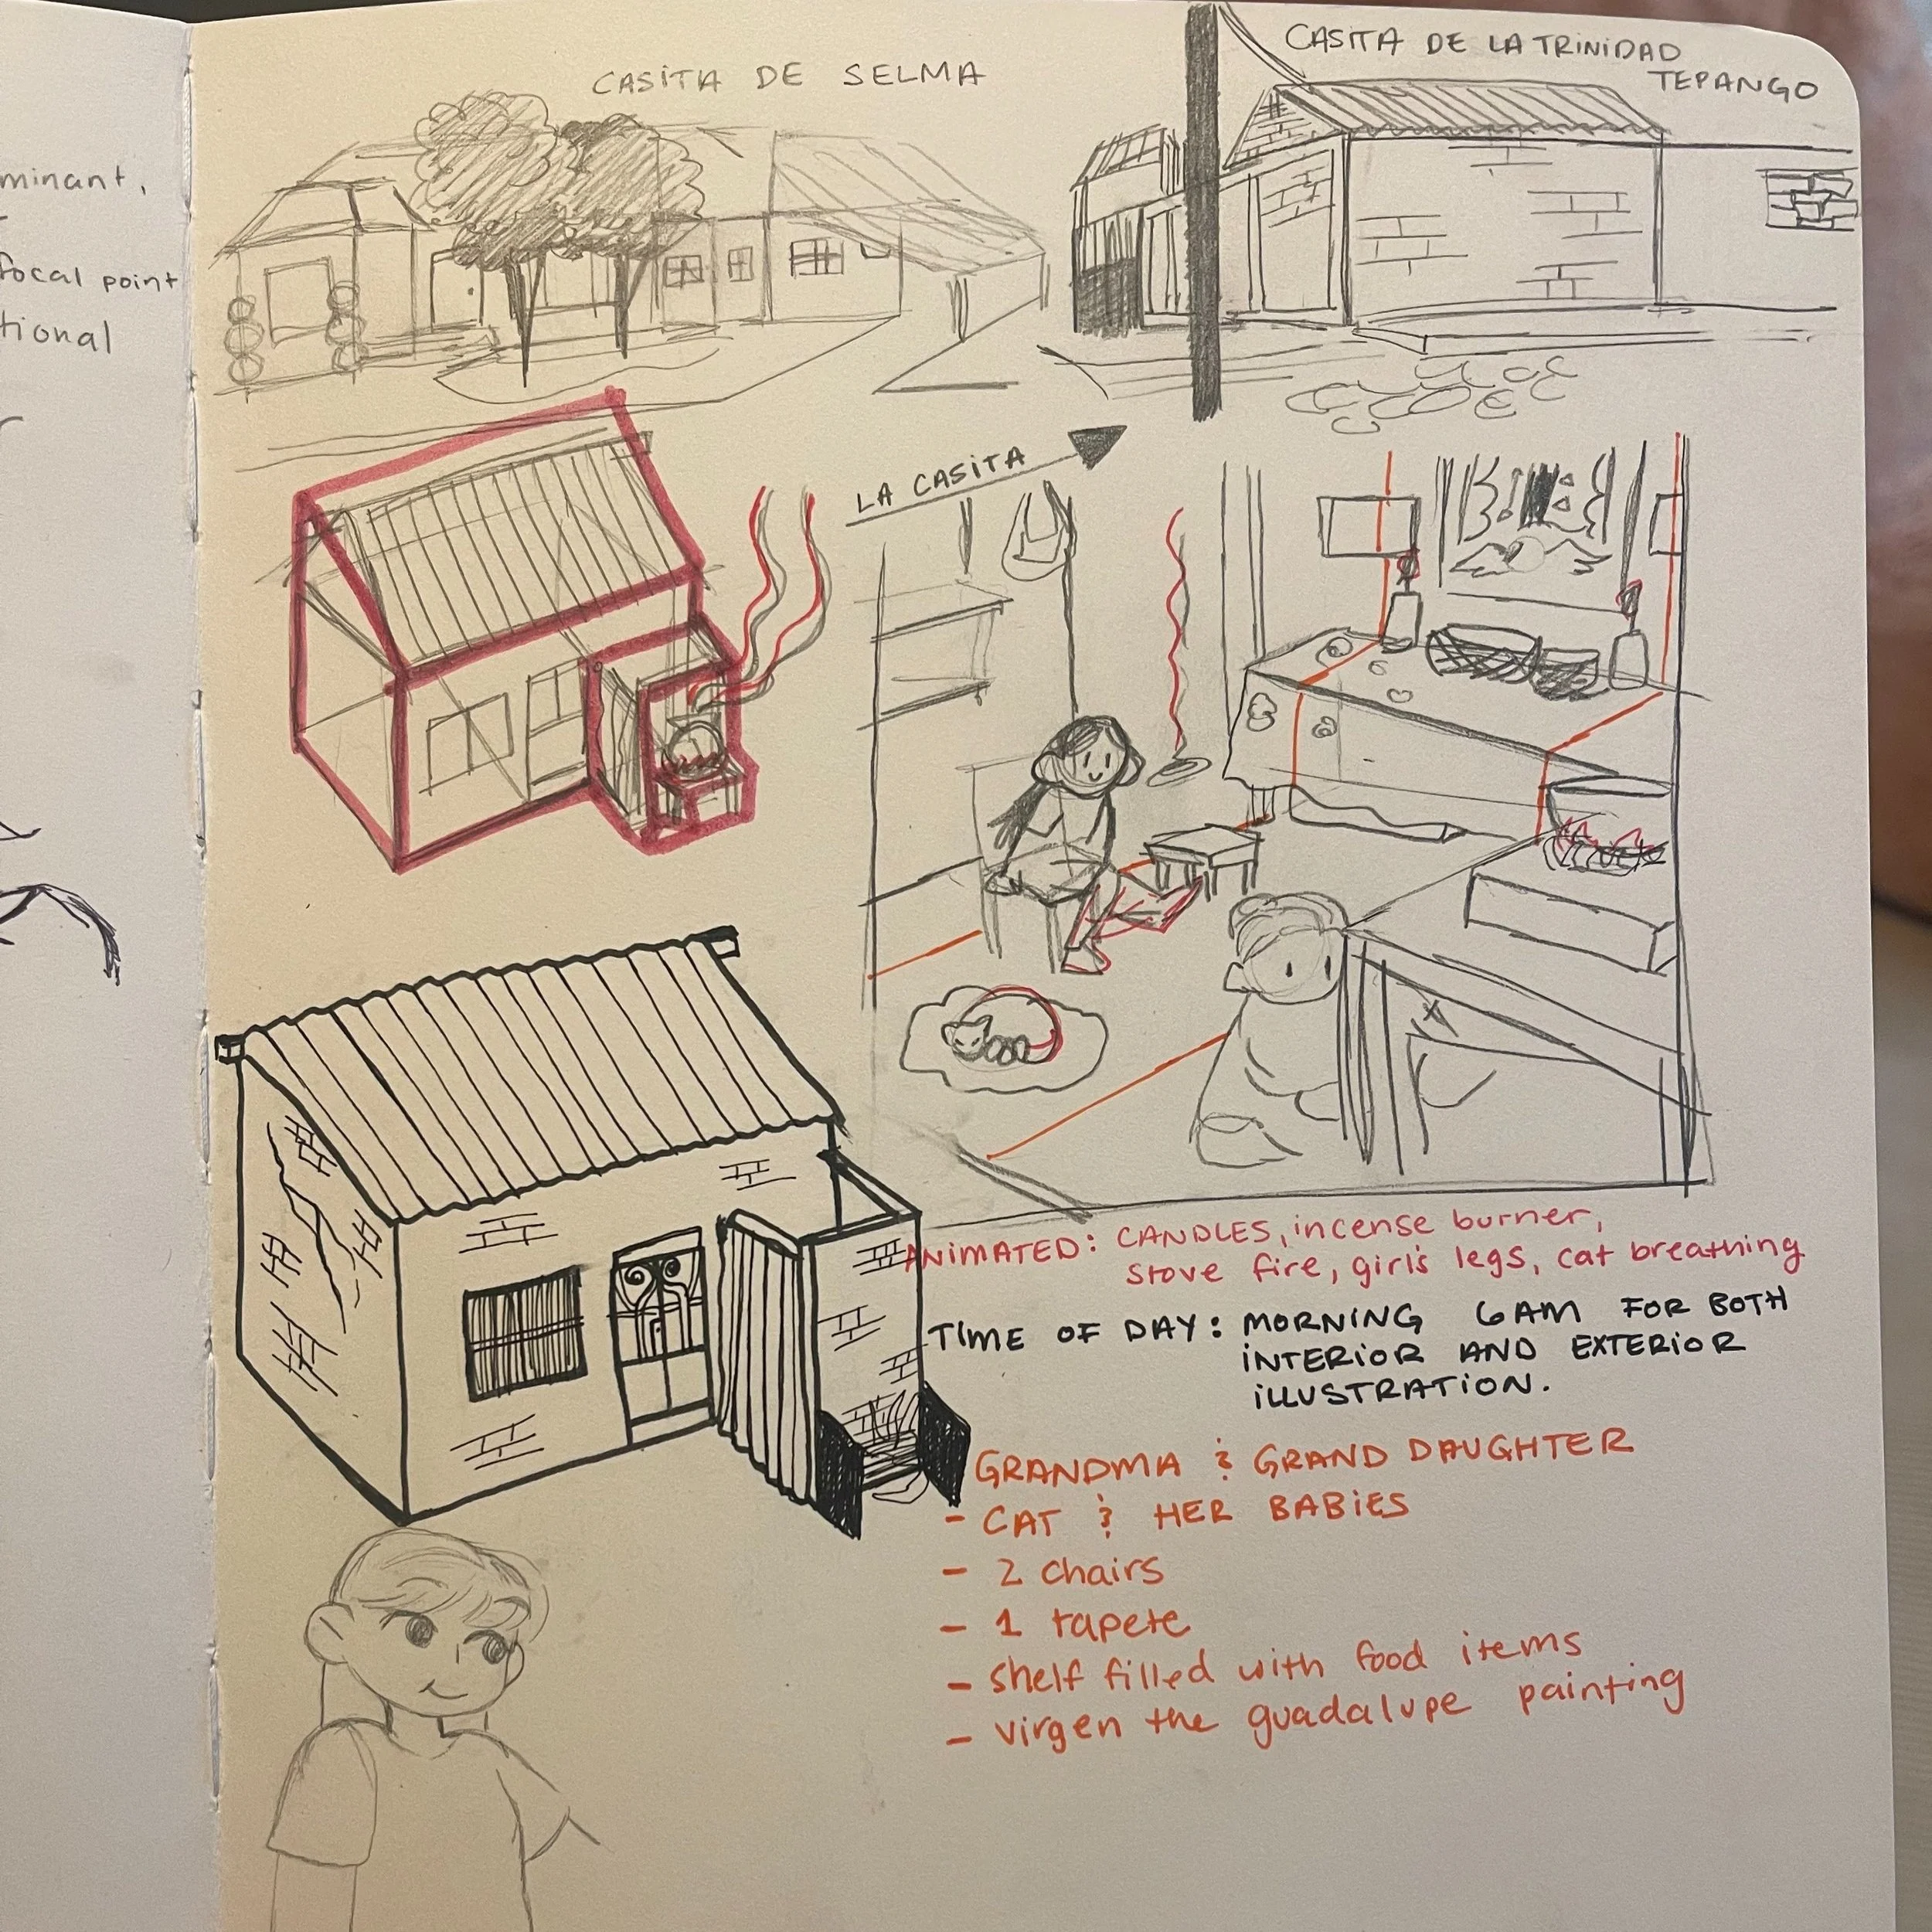 minant,
focal point
tional
CASITA DE SELMA
CASITA DE LA TRINIDAD
TEPANGO
LA CASITA
ANIMATED: CANDLES, incense burner,
stove fire, girls legs, cat breathing
TIME OF DAY: MORNING 6AM FOR BOTH
INTERIOR AND EXTERIOR
ILLUSTRATION.
GRANDMA & GRAND DAUGHTER
- CAT & HER BABIES
- 2 chairs
- 1 tapete
- shelf filled with food items
- virgen the guadalupe painting